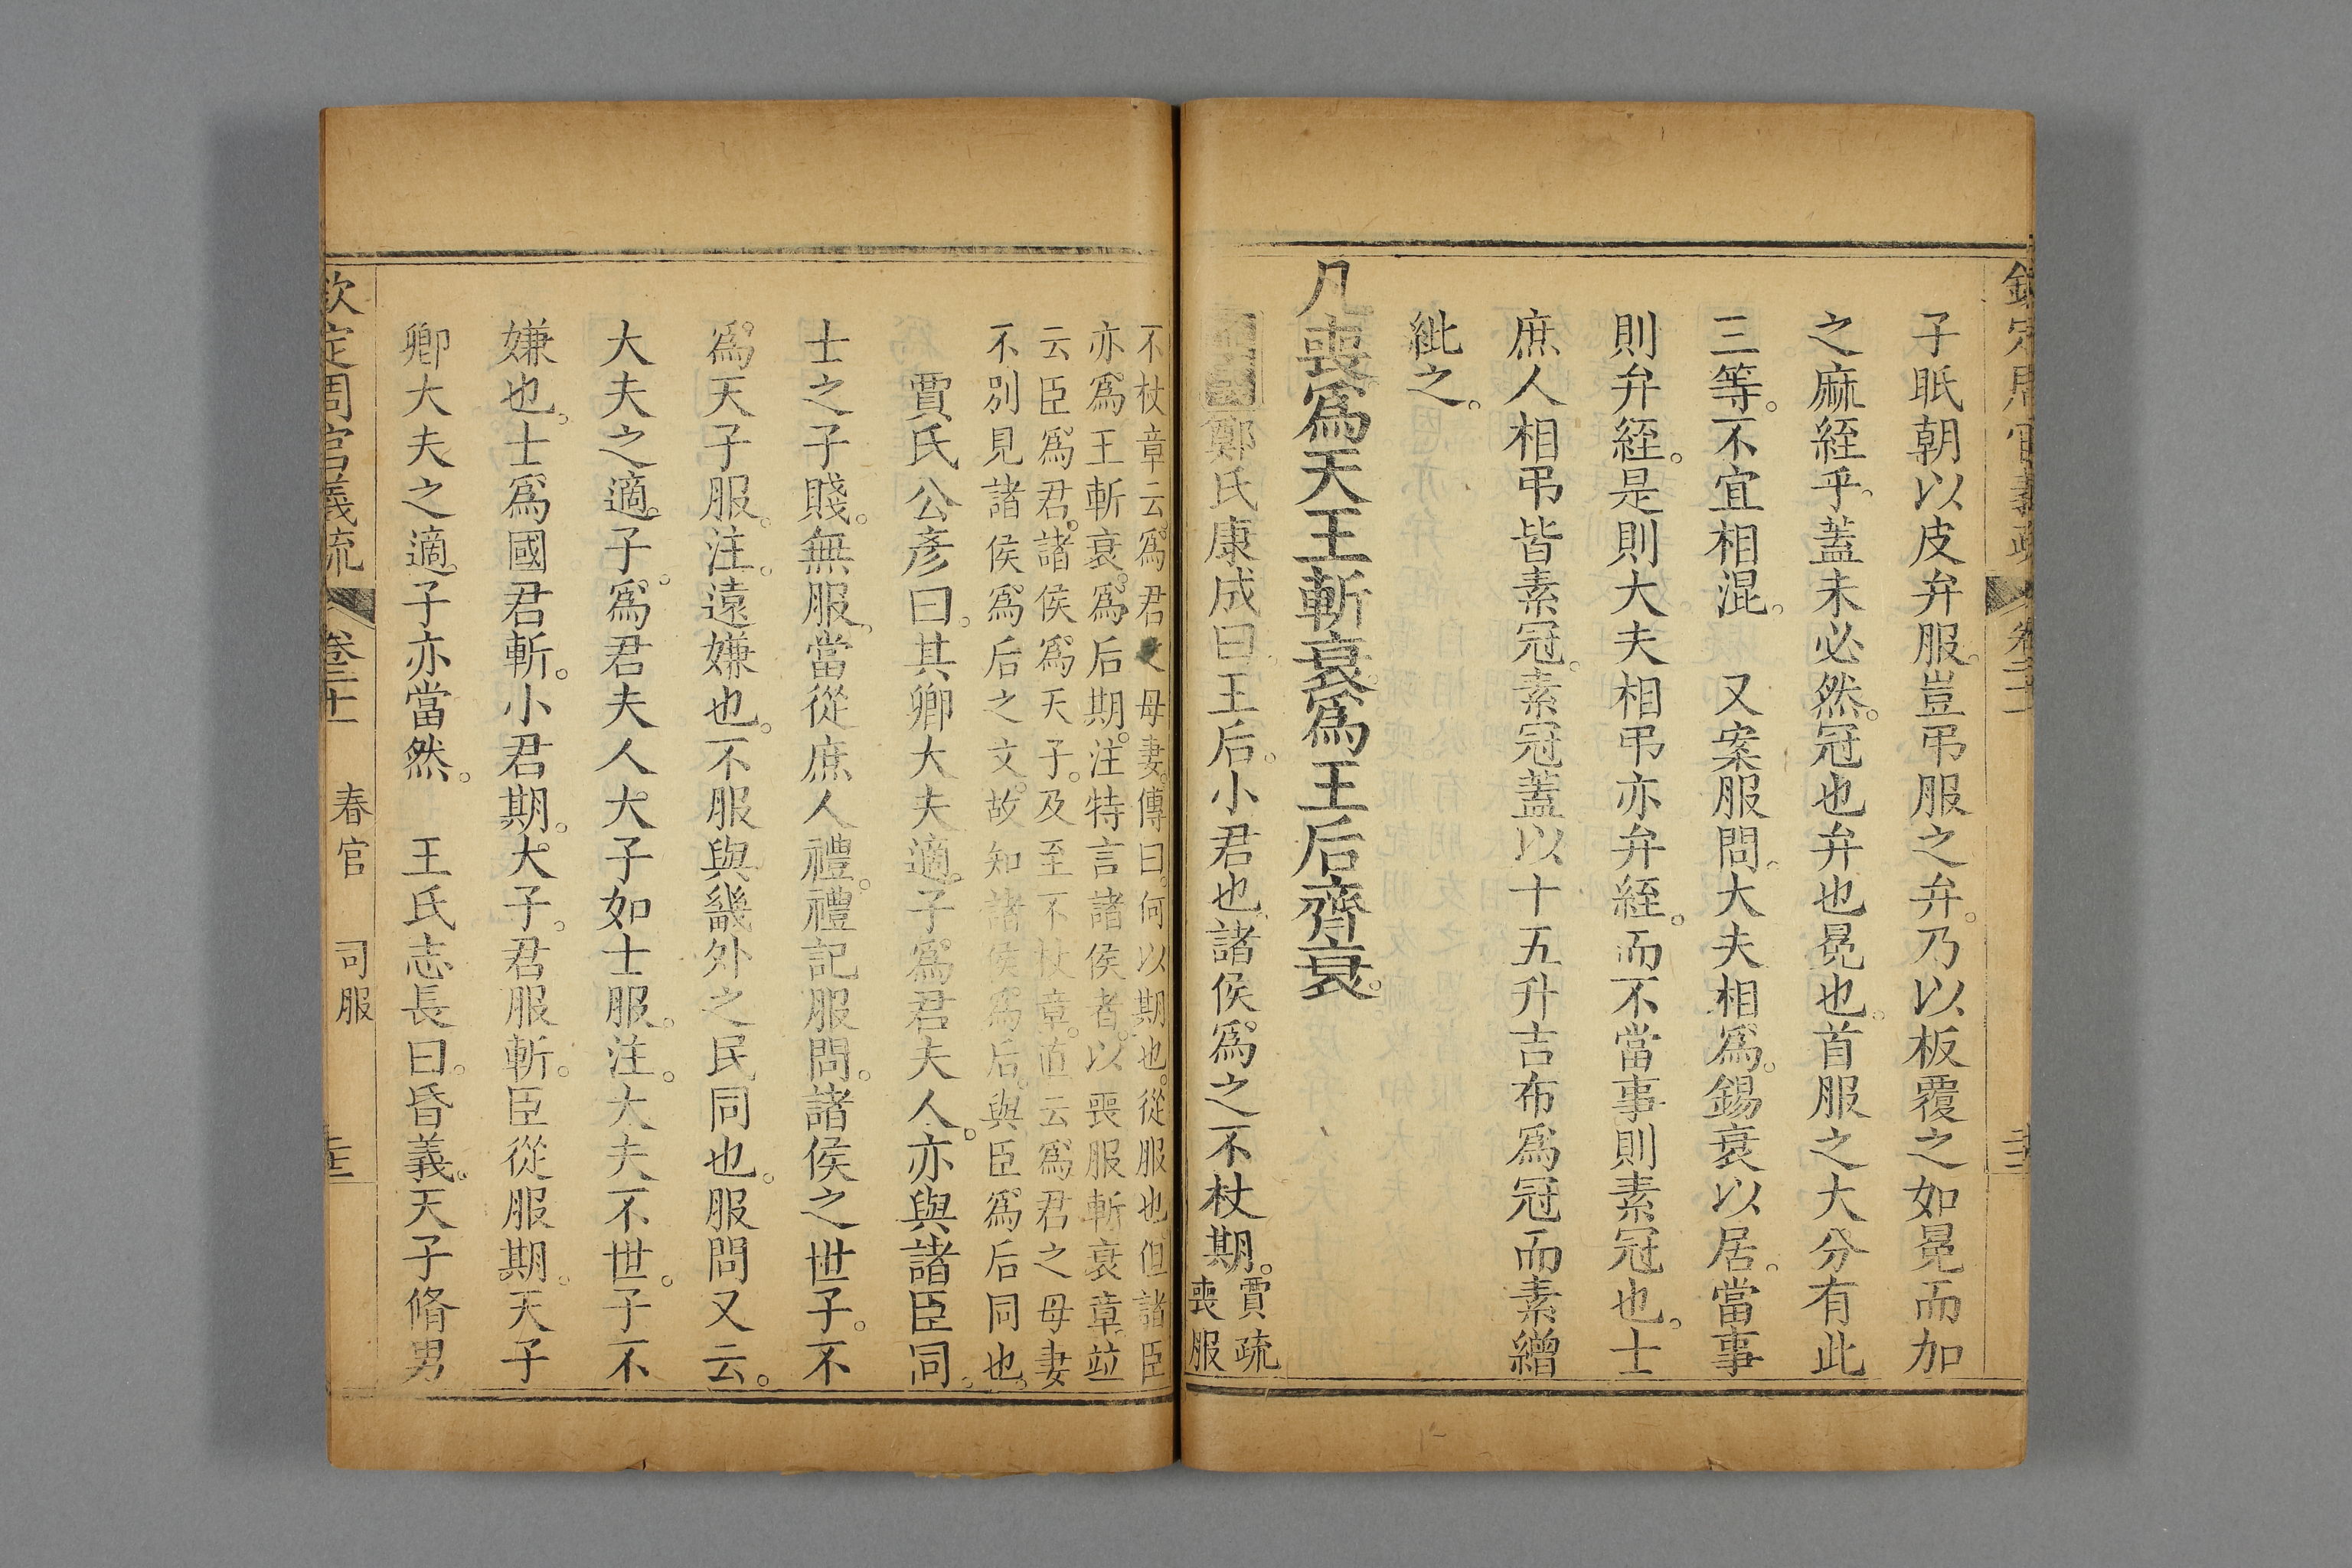 子眂朝以皮弁服。豈弔服之弁。乃以板覆之如冕而加
之麻絰乎。蓋未必然。冠也弁也冕也。首服之大分有此
三等。不宜相混。　又案服問。大夫相爲。錫衰以居。當事
則弁絰。是則大夫相弔亦弁絰。而不當事則素冠也。士
庶人相弔皆素冠。素冠蓋以十五升吉布爲冠而素繒
紕之。
凡喪爲天王斬衰爲王后齊衰。
鄭氏康成曰。王后。小君也。諸侯爲之不杖期。賈疏
喪服
不杖章云爲君之母妻。傳曰。何以期也。從服也。但諸臣
亦爲王斬衰。爲后期。注特言諸侯者。以喪服斬衰章。竝
云臣爲君。諸侯爲天子。及至不杖章。直云爲君之母妻
不別見諸侯爲后之文。故知諸侯爲后。與臣爲后同也。
賈氏公彥曰。其卿大夫適子爲君夫人。亦與諸臣同。
士之子賤。無服。當從庶人禮。禮記服問。諸侯之世子。不
爲天子服。注。遠嫌也。不服與畿外之民同也。服問又云。
大夫之適子。爲君夫人大子如士服。注。大夫不世。子不
嫌也。士爲國君斬。小君期。大子。君服斬。臣從服期。天子
卿大夫之適子亦當然。　王氏志長曰。昏義。天子脩男
欽定周官義疏　卷二十一　春官　司服